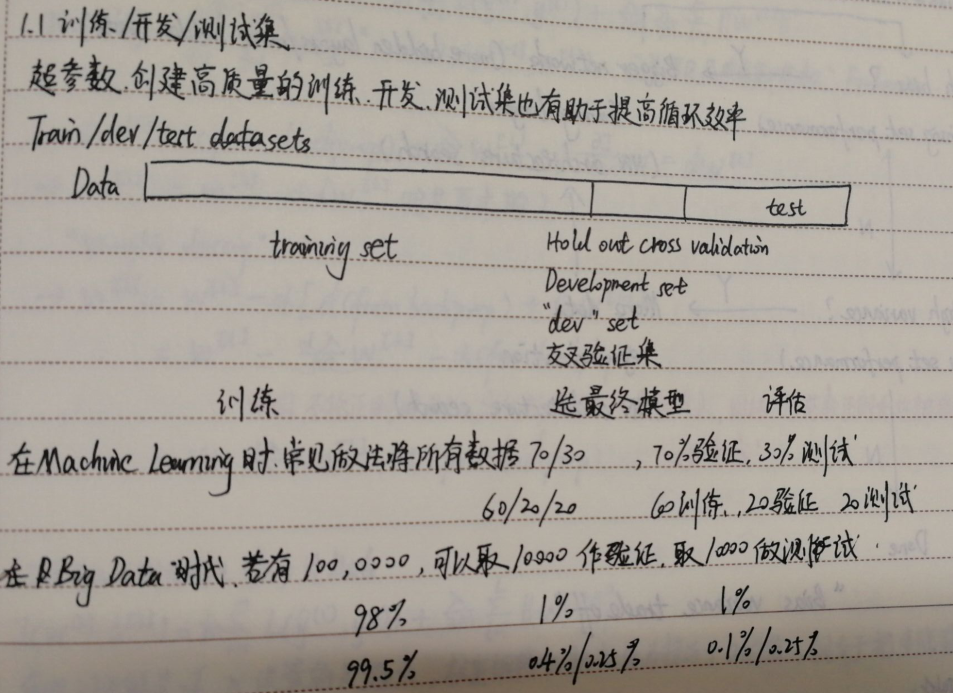 1.1 训练/开发/测试集
超参数.创建高质量的训练.开发.测试集也有助于提高循环效率
Train/dev/test datasets
Data test
training set Hold out cross validation
Development set
"dev" set
交叉验证集
训练 选最终模型 评估
在Machine Learning时.常见做法将所有数据 70/30 , 70%验证, 30%测试
60/20/20 60训练, 20验证 20测试
在 Big Data 时代, 若有 100,0000, 可以取 10000 作验证, 取 10000 做测试.
98% 1% 1%
99.5% 0.4%/0.25% 0.1%/0.25%